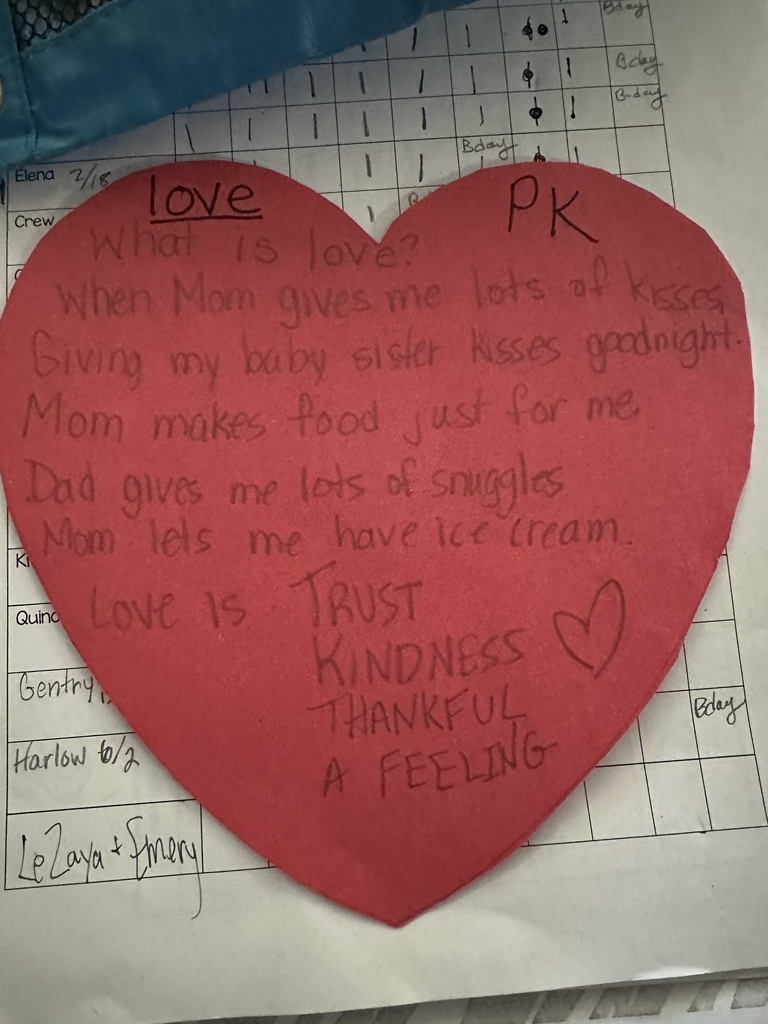 Bday
Bday
B-day
Bday
Elena 2/18
Crew
love
PK
What is love?
When Mom gives me lots of kisses,
Giving my baby sister kisses goodnight.
Mom makes food just for me
Dad gives me lots of snuggles
Mom lets me have ice cream.
Love is TRUST
KINDNESS
THANKFUL
A FEELING
Quinc
Gentry
Bday
Harlow 6/2
LeZaya + Emery